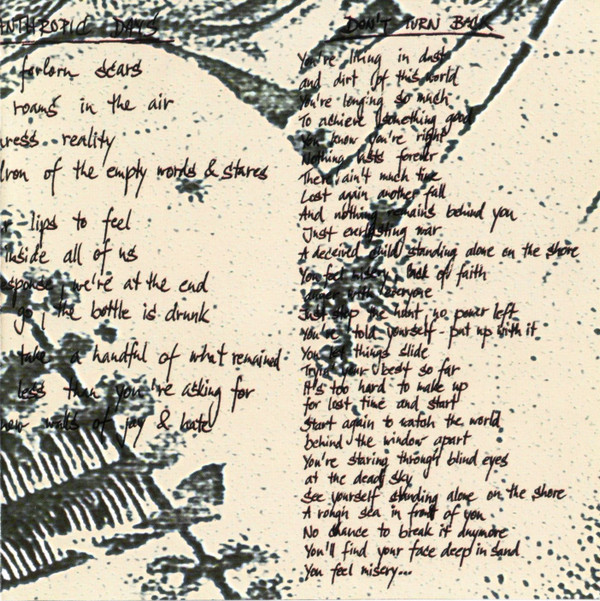 NTHROPIC DAYS
forlorn scars
roams in the air
ress reality
dron of the empty words & stares
lips to feel
inside all of us
esponse, we're at the end
go, the bottle is drunk
take a handful of what remained
less than you're asking for
new walls of joy & hate
DON'T TURN BACK
You're living in dust
and dirt of this world
You're longing so much
To achieve something good
You know you're right
Nothing lasts forever
There ain't much time
Lost again another fall
And nothing remains behind you
Just everlasting war
A deceived child standing alone on the shore
You feel misery, lack of faith
anger with everyone
Just stop the hunt, no power left
You've told yourself - put up with it
You let things slide
Tryin' your best so far
It's too hard to make up
for lost time and start
Start again to watch the world
behind the window apart
You're staring through blind eyes
at the dead sky
See yourself standing alone on the shore
A rough sea in front of you
No chance to break it anymore
You'll find your face deep in sand
You feel misery...